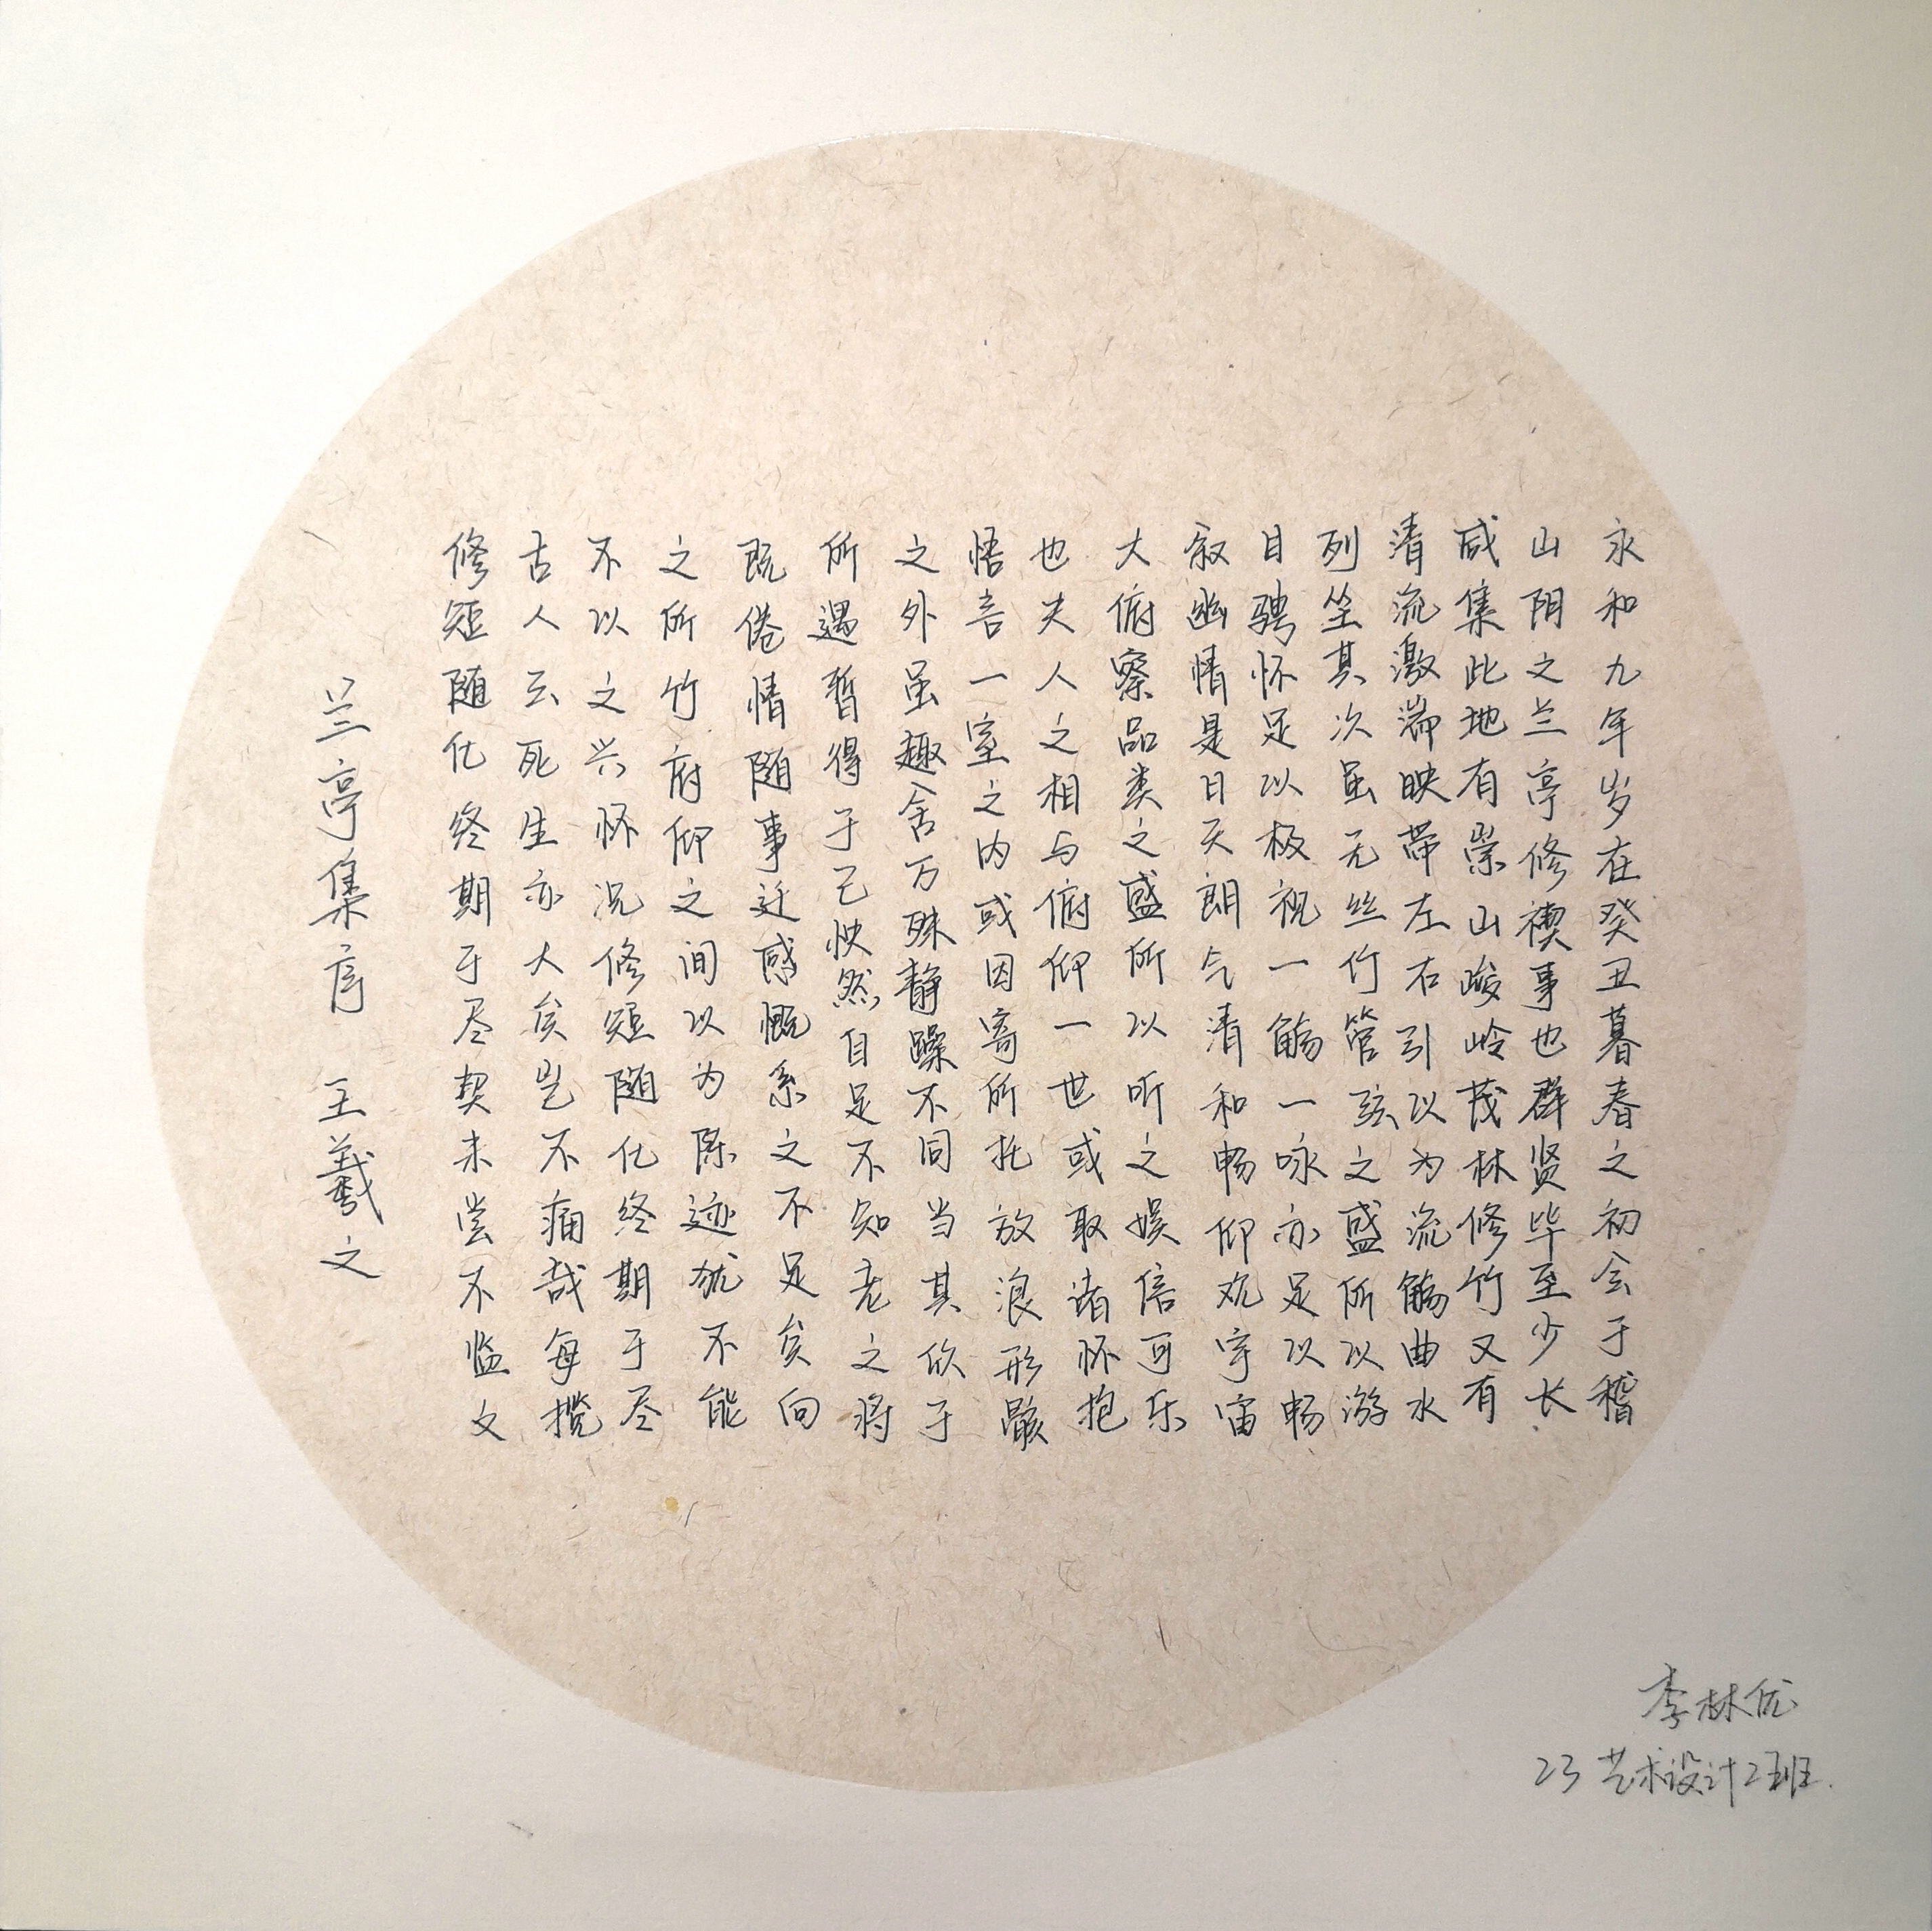 永和九年岁在癸丑暮春之初会于稽
山阴之兰亭修禊事也群贤毕至少长
咸集此地有崇山峻岭茂林修竹又有
清流激湍映带左右引以为流觞曲水
列坐其次虽无丝竹管弦之盛所以游
目骋怀足以极视一觞一咏亦足以畅
叙幽情是日天朗气清和畅仰观宇宙
大俯察品类之盛所以听之娱信可乐
也夫人之相与俯仰一世或取诸怀抱
悟言一室之内或因寄所托放浪形骸
之外虽趣舍万殊静躁不同当其欣于
所遇暂得于己快然自足不知老之将
既倦情随事迁感慨系之不足矣向
之所竹府仰之间以为陈迹犹不能
不以之兴怀况修短随化终期于尽
古人云死生亦大矣岂不痛哉每揽
修短随化终期于尽契未尝不临文
兰亭集序 王羲之
李林优
23艺术设计2班.